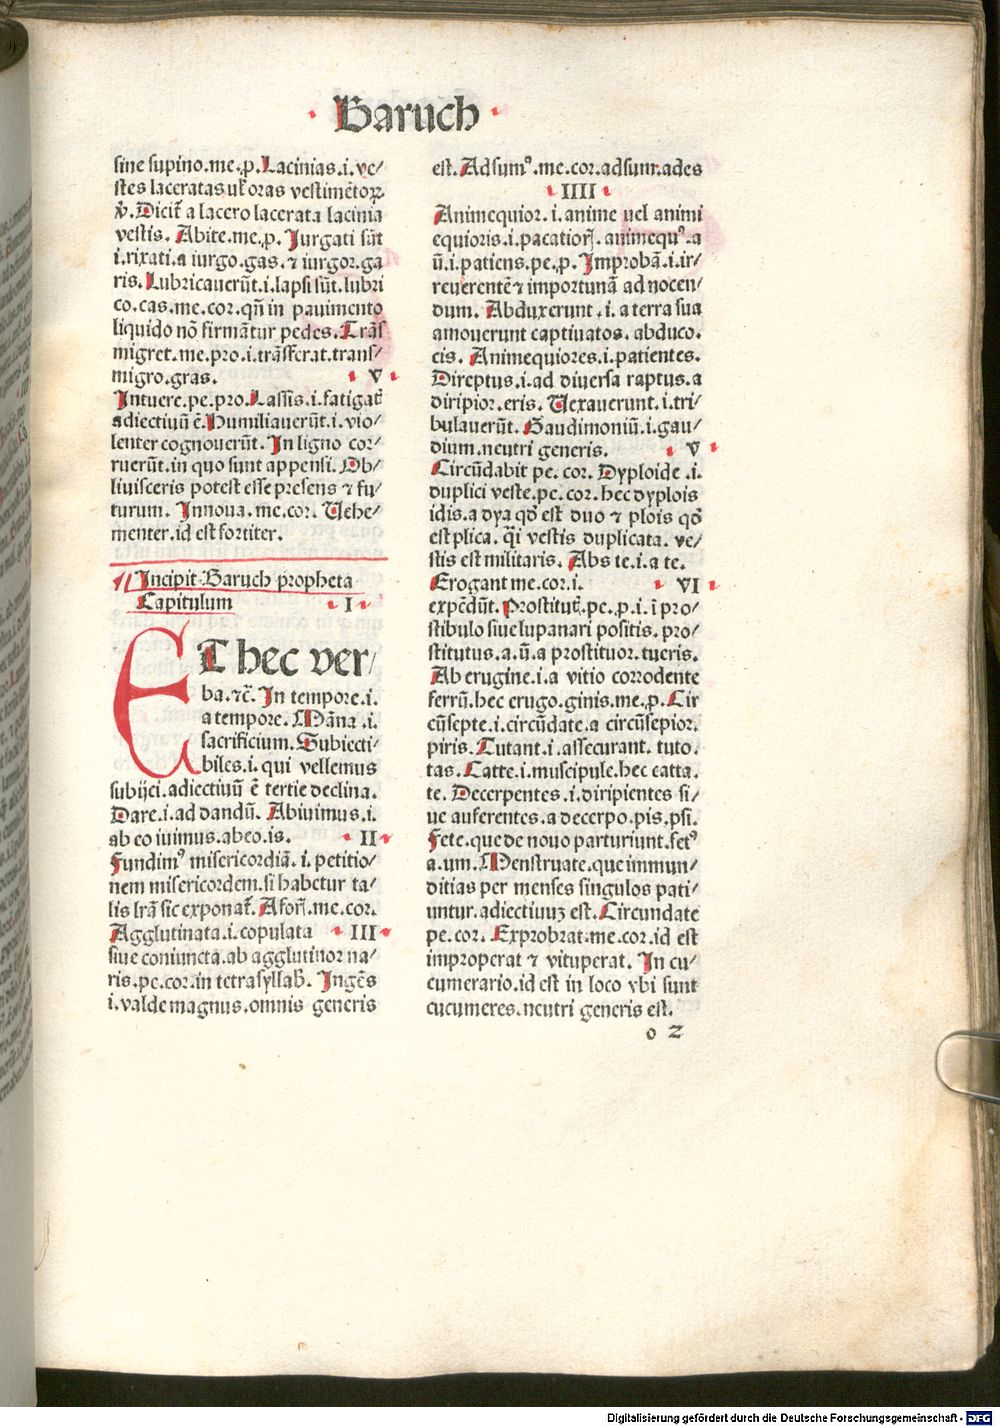 Baruch
sine supino.me.ꝓ.Lacinias.i.ve/
stes laceratas vꝉ oras vestimētoꝝ.
v̄.Dicit̄ a lacero lacerata lacinia
vestis. Abite.me.ꝓ. Jurgati sūt
i.rixati.a iurgo.gas.⁊ iurgor.ga
ris.Lubricauerūt.i.lapsi sūt.lubri
co.cas.me.cor.qn̄ in pauimento
liquido nō firmātur pedes.Trās
migret.me.pro.i.trāsferat.trans/
migro.gras. V
Intuere.pe.pro.Lassis.i.fatigat̄
adiectiuū ē.Humiliauerūt.i.vio/
lenter cognouerūt.In ligno cor/
ruerūt.in quo sunt appensi.Ob/
liuisceris potest esse presens ⁊ fu/
turum. Innoua.me.cor. Vehe/
menter.id est fortiter.
Incipit Baruch propheta
Capitulum I
ET hec ver/
ba.⁊c̄.In tempore.i.
a tempore.Māna.i.
sacrificium.Subiecti/
biles.i.qui vellemus
subijci.adiectiuū ē tertie declina.
Dare.i.ad dandū. Abiuimus.i.
ab eo iuimus.abeo.is. II
Fundimꝰ misericordiā.i.petitio/
nem misericordem.si habetur ta/
lis lr̄a sic exponat̄.Aforꝭ.me.cor.
Agglutinata.i.copulata III
siue coniuncta.ab agglutinor na/
ris.pe.cor.in tetrasyllab̄. Ingēs
i.valde magnus.omnis generis
est.Adsumꝰ.me.cor.adsum.ades
IIII
Animequior.i.anime vel animi
equioris.i.pacatiorꝭ.animequꝰ.a
ū.i.patiens.pe.ꝓ.Improbā.i.ir/
reuerentē ⁊ importunā ad nocen/
dum. Abduxerunt.i.a terra sua
amouerunt captiuatos.abduco.
cis. Animequiores.i.patientes.
Direptus.i.ad diuersa raptus.a
diripior.eris. Vexauerunt.i.tri/
bulauerūt. Gaudimoniū.i.gau/
dium.neutri generis. V
Circūdabit pe.cor. Dyploide.i.
duplici veste.pe.cor.hec dyplois
idis.a dya qd̄ est duo ⁊ plois qd̄
est plica.q̄i vestis duplicata.ve/
stis est militaris. Abs te.i.a te.
Erogant me.cor.i. VI
expēdūt.Prostitut̄.pe.ꝓ.i.ī pro/
stibulo siue lupanari positis.pro/
stitutus.a.ū.a prostituor.tueris.
Ab erugine.i.a vitio corrodente
ferrū.hec erugo.ginis.me.ꝓ.Cir
cūsepte.i.circūdate.a circūsepior.
piris. Tutant.i.assecurant. tuto.
tas.Catte.i.muscipule.hec catta.
te. Decerpentes.i.diripientes si/
ue auferentes.a decerpo.pis.psi.
Fete.que de nouo parturiunt.fetꝰ
a.um.Menstruate.que immun/
ditias per menses singulos pati/
untur.adiectiuuꝫ est.Circundate
pe.cor. Exprobrat.me.cor.id est
improperat ⁊ vituperat. In cu/
cumerario.id est in loco vbi sunt
cucumeres.neutri generis est.
o 2
Digitalisierung gefördert durch die Deutsche Forschungsgemeinschaft - DFG